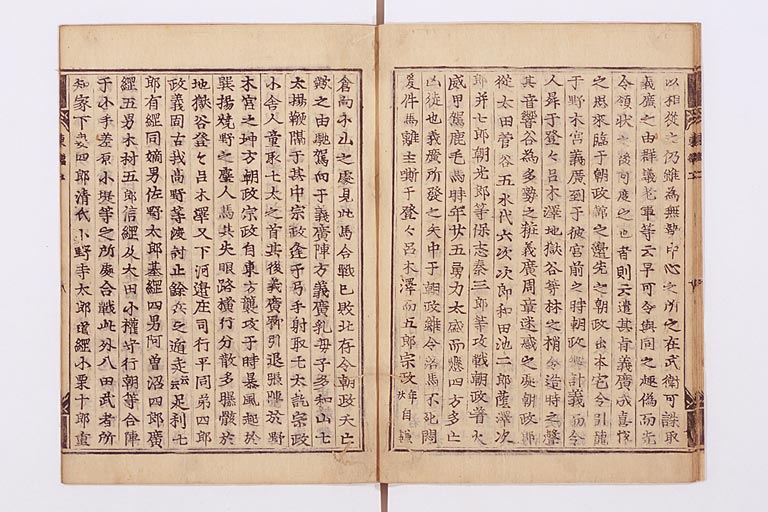 以相從之仍雖為無勢中心之所之在武衛可誅取
義廣之由群議老軍等云早可令與同之趣偽而先
令領狀之後可度之也者則云遣其旨義廣成喜悅
之思來臨于朝政館之邊先之朝政出本宅令引籠
于野木宮義廣到于彼宮前之時朝政廻計義而令
人昇于登々呂木澤地獄谷等林之梢令造時之聲
其音響谷為多勢之粧義廣周章迷惑之處朝政郎
從太田菅谷五永代六次次郎和田池二郎蔭澤次
郎并七郎朝光郎等保志秦三郎等攻戰朝政著火
威甲駕鹿毛馬時年廿五勇力太盛而懸四方多亡
凶徒也義廣所發之矢中于朝政雖令落馬不死悶
爰件馬離主嘶于登々呂木澤而五郎宗政年廿自鎌
倉向小山之處見此馬合戰已敗北存令朝政夭亡
歟之由馳駕向于義廣陣方義廣乳母子多和山七
太揚鞭隔于其中宗政逢于弓手射取七太訖宗政
小舎人童取七太之首其後義廣聊引退張陣於野
木宮之坤方朝政宗政自東方襲攻于時暴風起於
巽揚燒野之塵人馬共失眼路橫行分散多曝骸於
地獄谷登々呂木澤又下河邊庄司行平同弟四郎
政義固古我高野等渡討止餘兵之遁走云云足利七
郎有經同嫡男佐野太郎基經四男阿曽沼四郎廣
經五男木村五郎信經及大田小權守行朝等合陣
于小手差原小堤等之所處合戰此外八田武者所
知家下妻四郎清氏小野寺太郎道經小栗十郎重